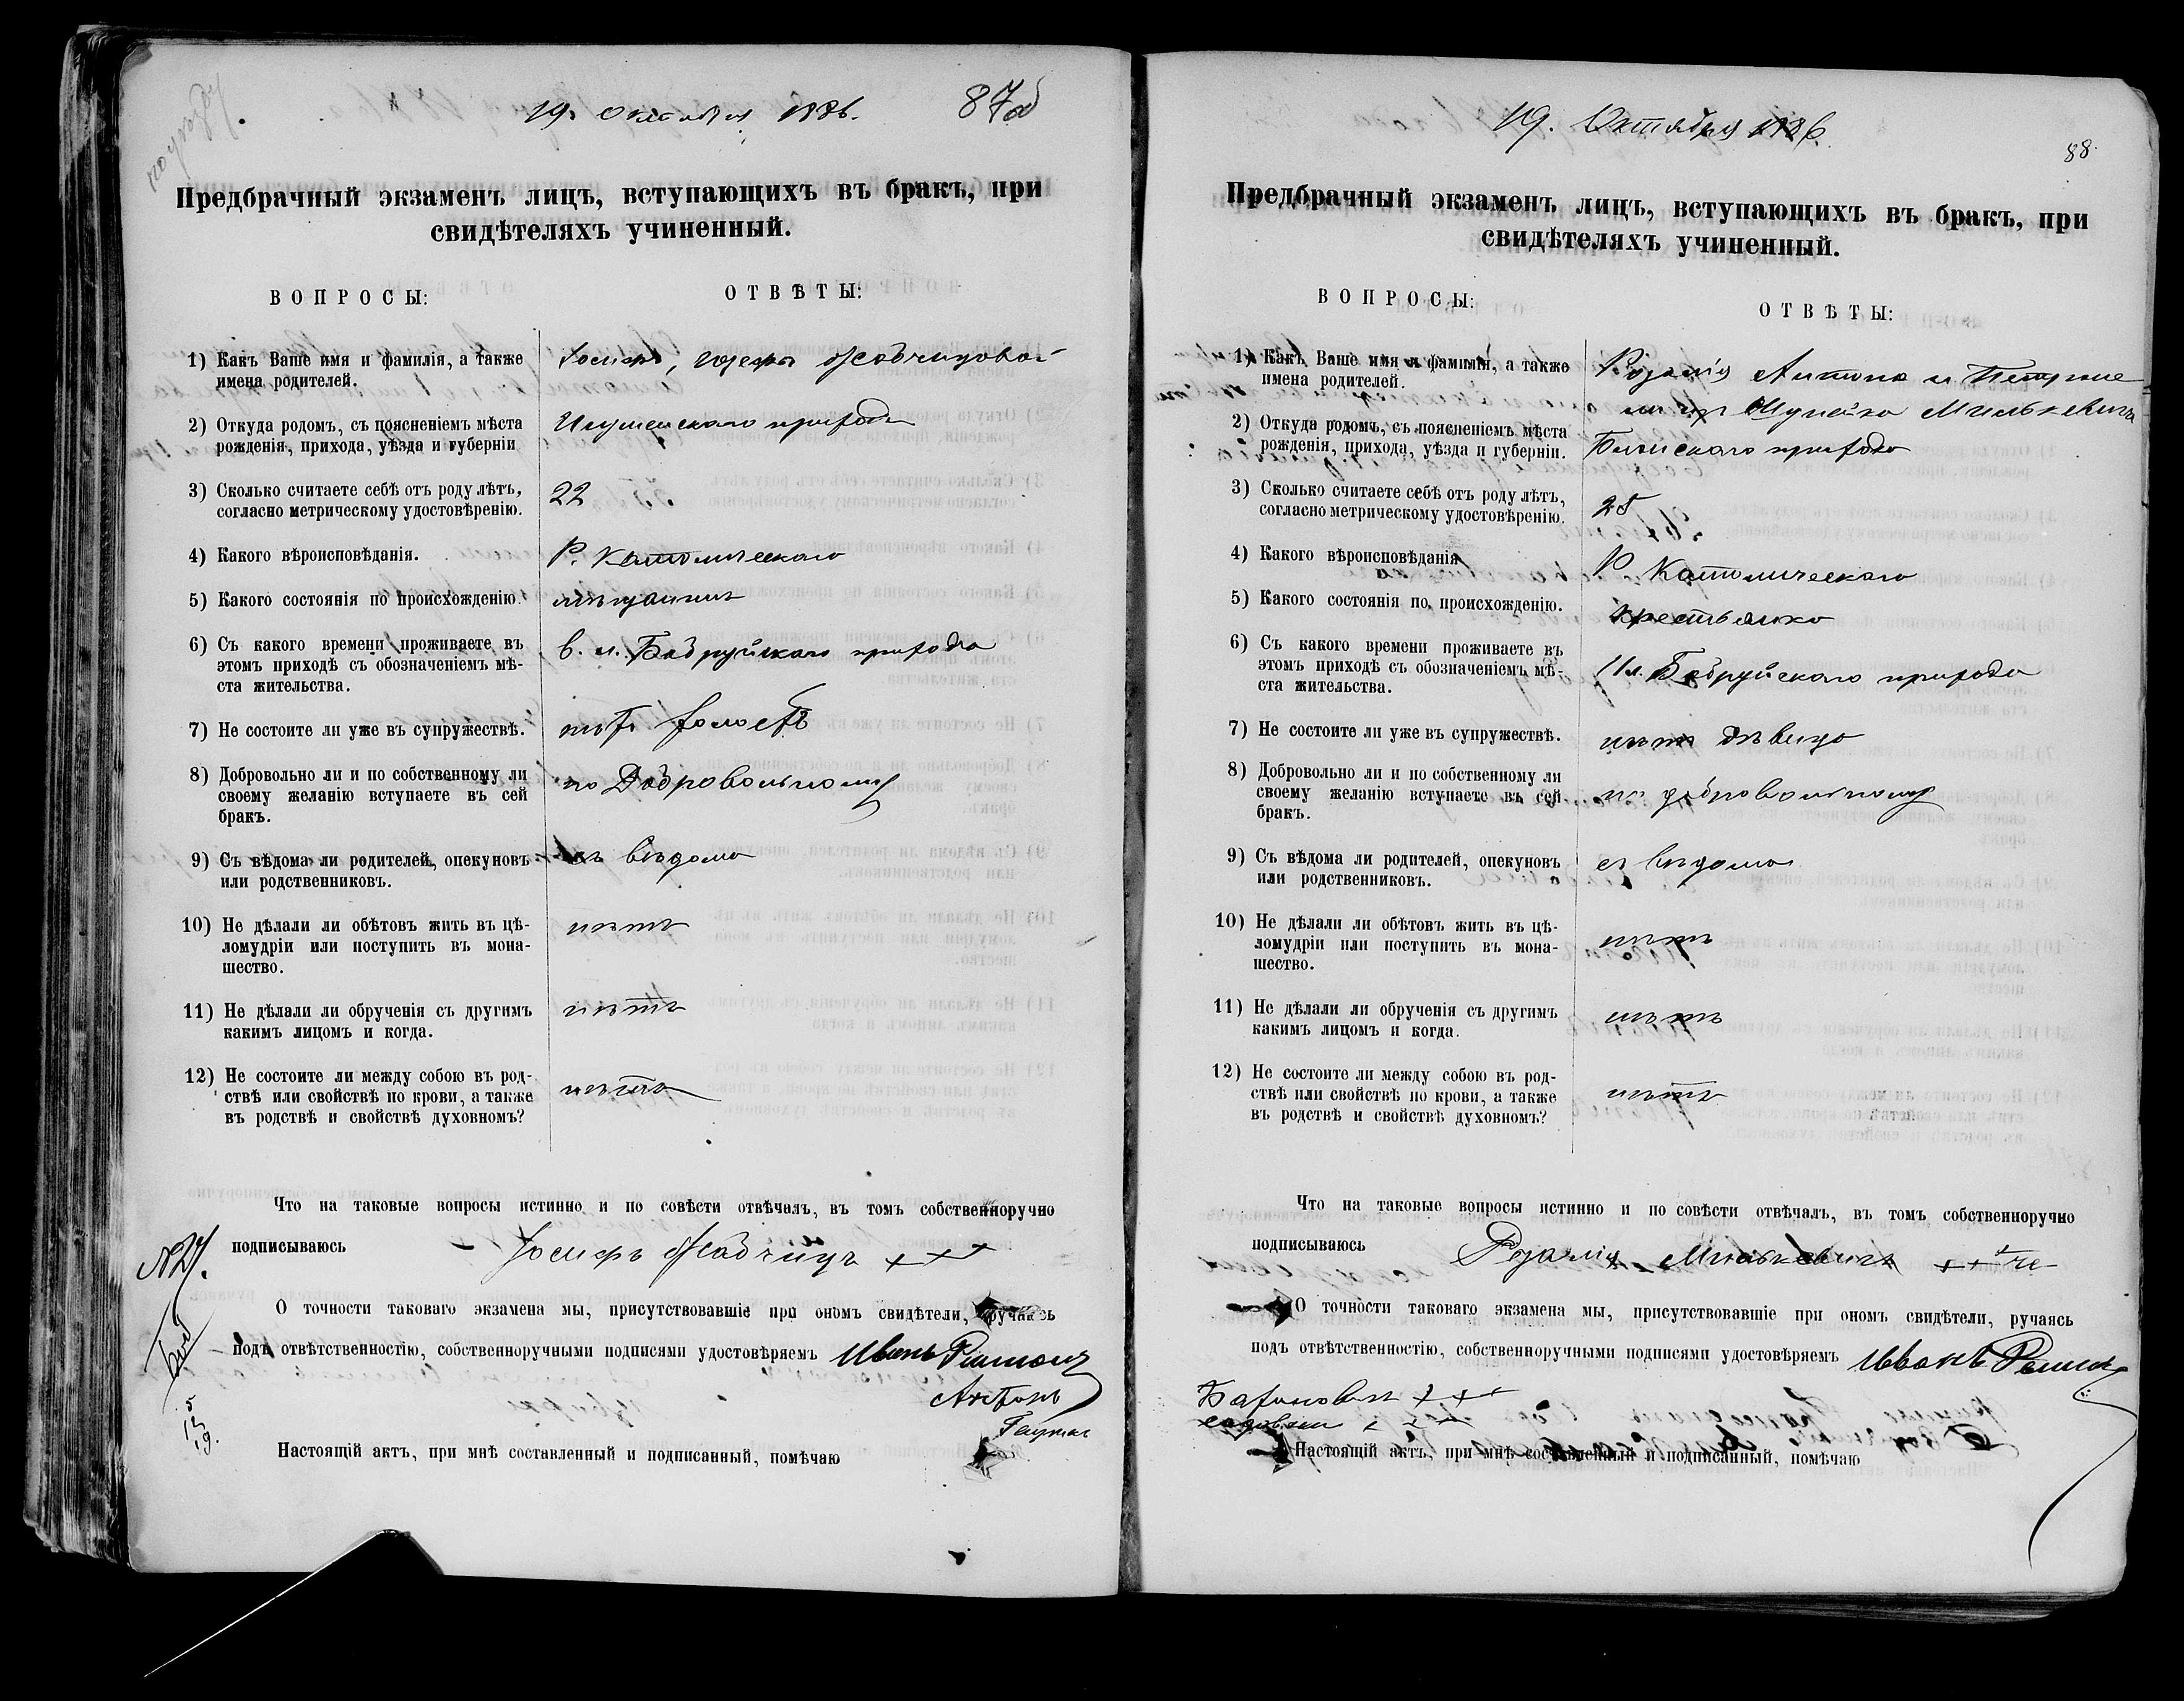 19. Октября 1886.
87об
Предбрачный экзаменъ лицъ, вступающихъ въ бракъ, при
свидѣтеляхъ учиненный.
ВОПРОСЫ:
ОТВѢТЫ:
1) Какъ Ваше имя и фамилія, а также
имена родителей.
Іосифъ,
2) Откуда родомъ, съ поясненіемъ мѣста
рожденія, прихода, уѣзда и губерніи
Игуменскаго прихода
3) Сколько считаете себѣ отъ роду лѣтъ,
согласно метрическому удостовѣренію.
22
4) Какого вѣроисповѣданія.
Р. Католическаго
5) Какого состоянія по происхожденію.
мѣщанинъ
6) Съ какого времени проживаете въ
этомъ приходѣ съ обозначеніемъ мѣ-
ста жительства.
в. м. Бобруйскаго прихода
7) Не состоите ли уже въ супружествѣ.
нѣтъ холостъ
8) Добровольно ли и по собственному ли
своему желанію вступаете въ сей
бракъ.
по Добровольному
9) Съ вѣдома ли родителей, опекуновъ
или родственниковъ.
съ вѣдома
10) Не дѣлали ли обѣтовъ жить въ цѣ-
ломудріи или поступить въ мона-
шество.
нѣтъ
11) Не дѣлали ли обрученія съ другимъ
какимъ лицомъ и когда.
нѣтъ
12) Не состоите ли между собою въ род-
ствѣ или свойствѣ по крови, а также
въ родствѣ и свойствѣ духовномъ?
нѣтъ
Что на таковые вопросы истинно и по совѣсти отвѣчалъ, въ томъ собственноручно
подписываюсь Іосифъ +++
О точности таковаго экзамена мы, присутствовавшіе при ономъ свидѣтели, ручаясь
подъ отвѣтственностію, собственноручными подписями удостовѣряемъ Иванъ
Антонъ
Настоящій актъ, при мнѣ составленный и подписанный, помѣчаю
19. Октября 1886.
88.
Предбрачный экзаменъ лицъ, вступающихъ въ бракъ, при
свидѣтеляхъ учиненный.
ВОПРОСЫ:
ОТВѢТЫ:
1) Какъ Ваше имя и фамилія, а также
имена родителей.
Розалія Антона и Петроне
Милькевичъ
2) Откуда родомъ, съ поясненіемъ мѣста
рожденія, прихода, уѣзда и губерніи.
прихода
3) Сколько считаете себѣ отъ роду лѣтъ,
согласно метрическому удостовѣренію.
25
4) Какого вѣроисповѣданія
Р. Католическаго
5) Какого состоянія по происхожденію.
крестьянка
6) Съ какого времени проживаете въ
этомъ приходѣ съ обозначеніемъ мѣ-
ста жительства.
Бобруйскаго прихода
7) Не состоите ли уже въ супружествѣ.
нѣтъ дѣвица
8) Добровольно ли и по собственному ли
своему желанію вступаете въ сей
бракъ.
по добровольному
9) Съ вѣдома ли родителей, опекуновъ
или родственниковъ.
съ вѣдома
10) Не дѣлали ли обѣтовъ жить въ цѣ-
ломудріи или поступить въ мона-
шество.
нѣтъ
11) Не дѣлали ли обрученія съ другимъ
какимъ лицомъ и когда.
нѣтъ
12) Не состоите ли между собою въ род-
ствѣ или свойствѣ по крови, а также
въ родствѣ и свойствѣ духовномъ?
нѣтъ
Что на таковые вопросы истинно и по совѣсти отвѣчалъ, въ томъ собственноручно
подписываюсь Розалія Милькевичъ
О точности таковаго экзамена мы, присутствовавшіе при ономъ свидѣтели, ручаясь
подъ отвѣтственностію, собственноручными подписями удостовѣряемъ Иванъ
+++
Настоящій актъ, при мнѣ составленный и подписанный, помѣчаю